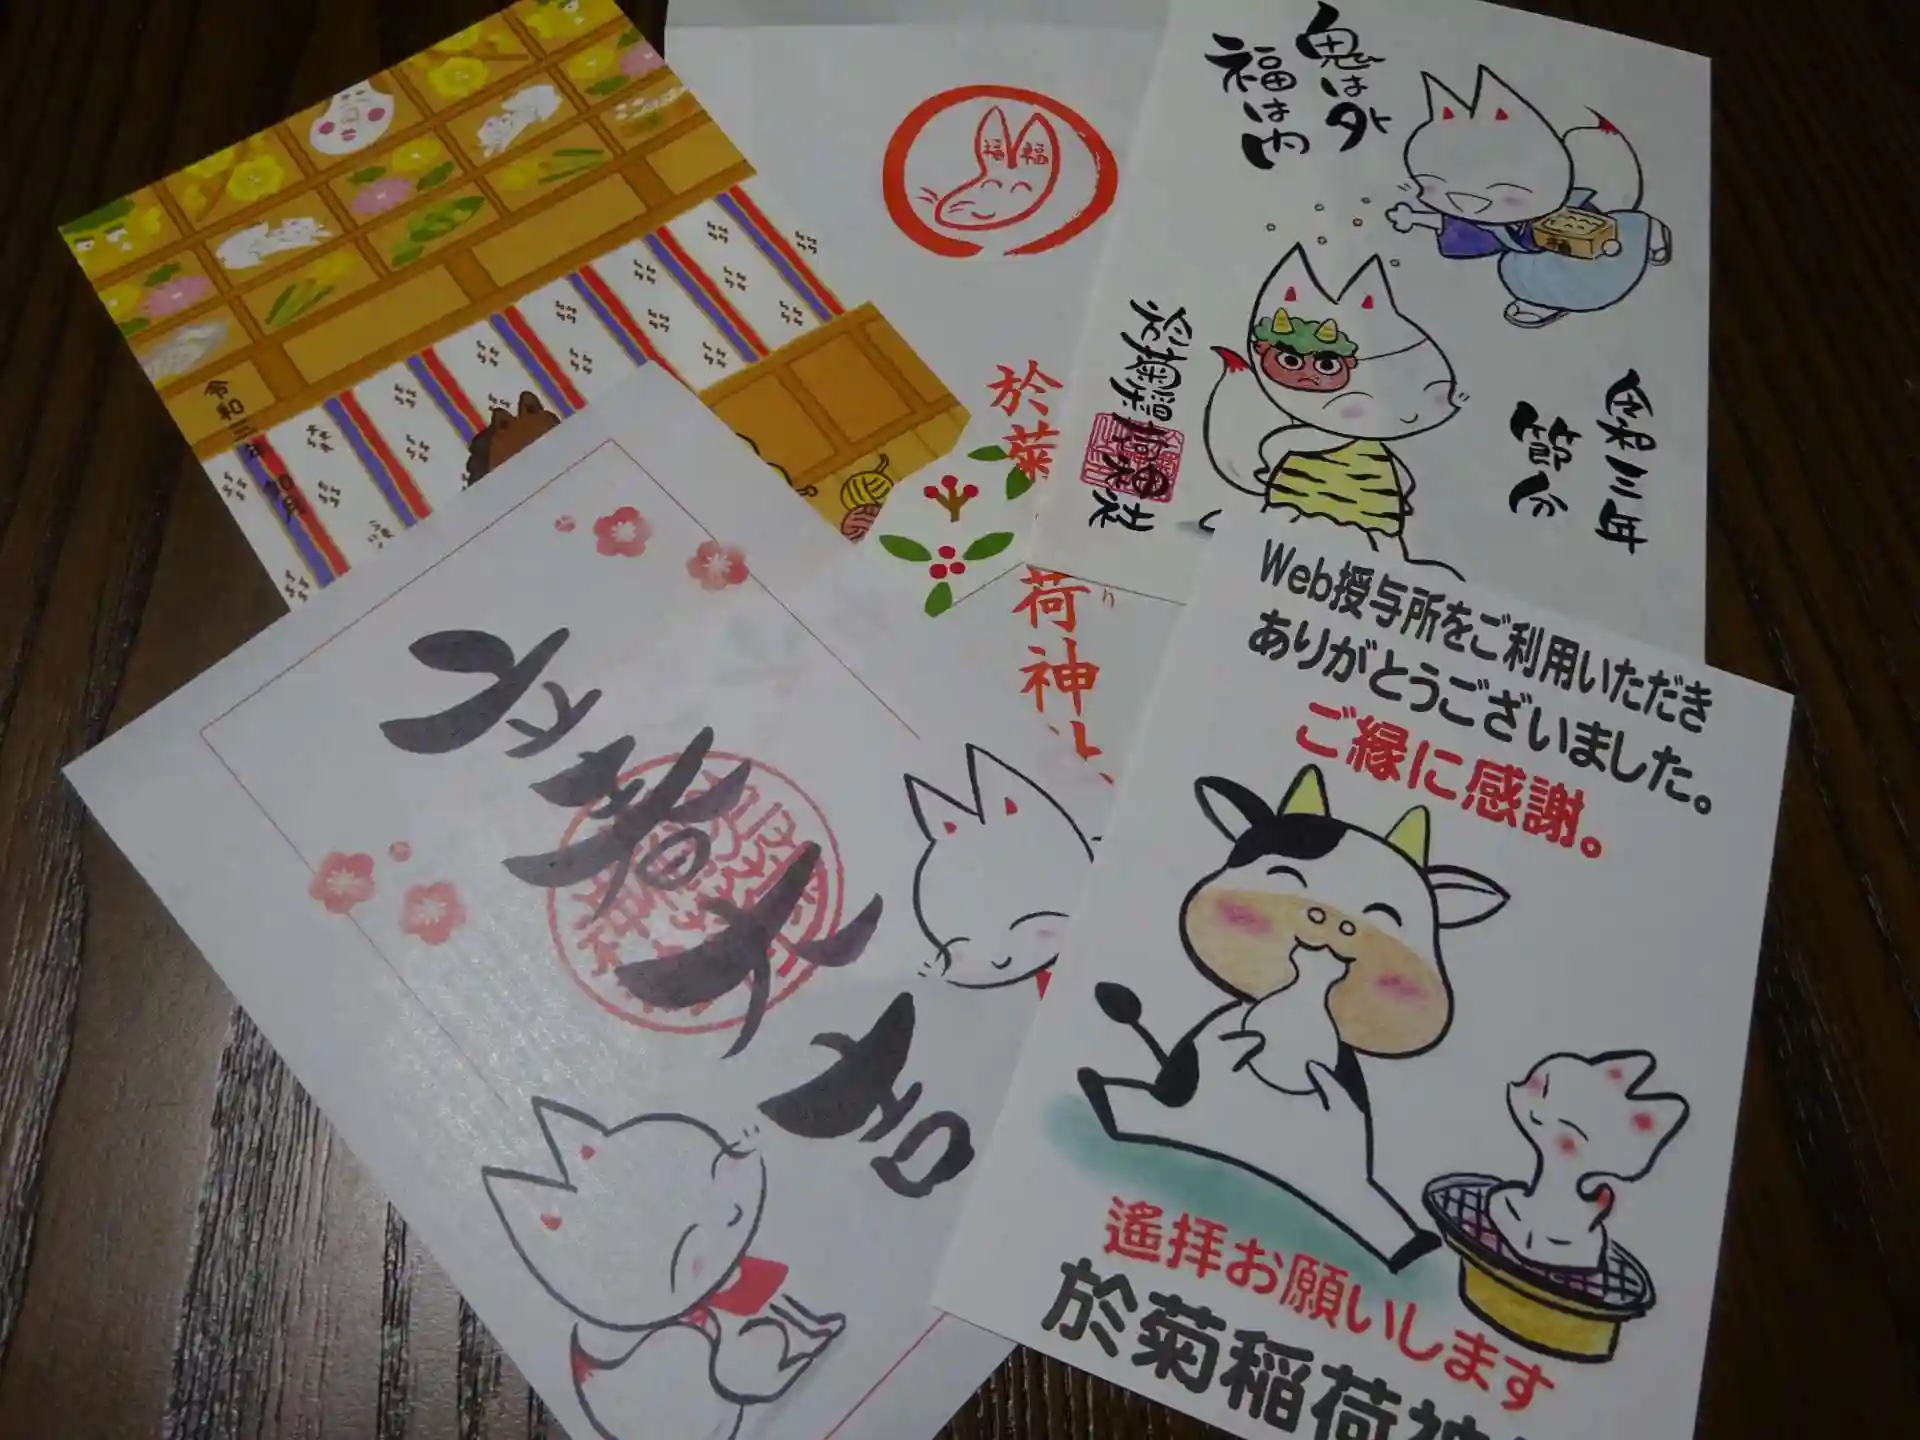 鬼は外
福は内
福 福
福
令和三年
如月
於菊
荷神
於菊稲荷神社
令和三年
節分
立春大吉
Web授与所をご利用いただき
ありがとうございました。
ご縁に感謝。
遙拝お願いします
於菊稲荷神